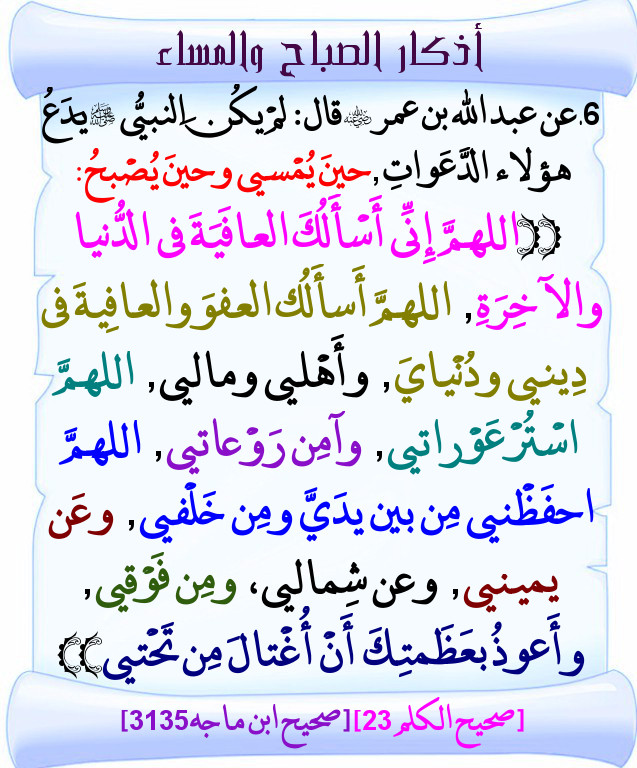 أذكار الصباح والمساء
6.عن عبد الله بن عمر رضي الله عنه قال: لمْ يكُن النبيُّ ﷺ يدَعُ
هؤلاء الدَّعَواتِ,حينَ يُمْسي وحينَ يُصْبحُ:
((اللهمَّ إِنِّي أَسْأَلُكَ العافَيَةَ في الدُّنيا
والآخِرَةِ, اللهمَّ أَسأَلُك العفوَ والعافِيةَ في
دِيني ودُنْيايَ, وأَهْلي ومالي, اللهمَّ
اسْتُرْ عَوْراتي, وآمِن رَوْعاتي, اللهمَّ
احفَظْني مِن بين يدَيَّ ومِن خَلْفي, وعَن
يميني, وعن شِمالي، ومِن فَوْقِي,
وأَعوذُ بعَظَمتِكَ أَنْ أُغْتالَ مِن تَحْتي))
[صحيح الكلم 23][صحيح ابن ماجه 3135]